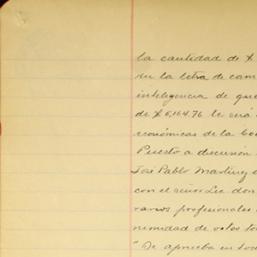 la cantidad de $
en la letra de cam
inteligencia de que
de $5,164.76 le será
económicas de la Co
Puesto a discusión
José Pablo Martínez
con el señor Lee don
varios profesionales
nimidad de votos
"Se aprueba en tod